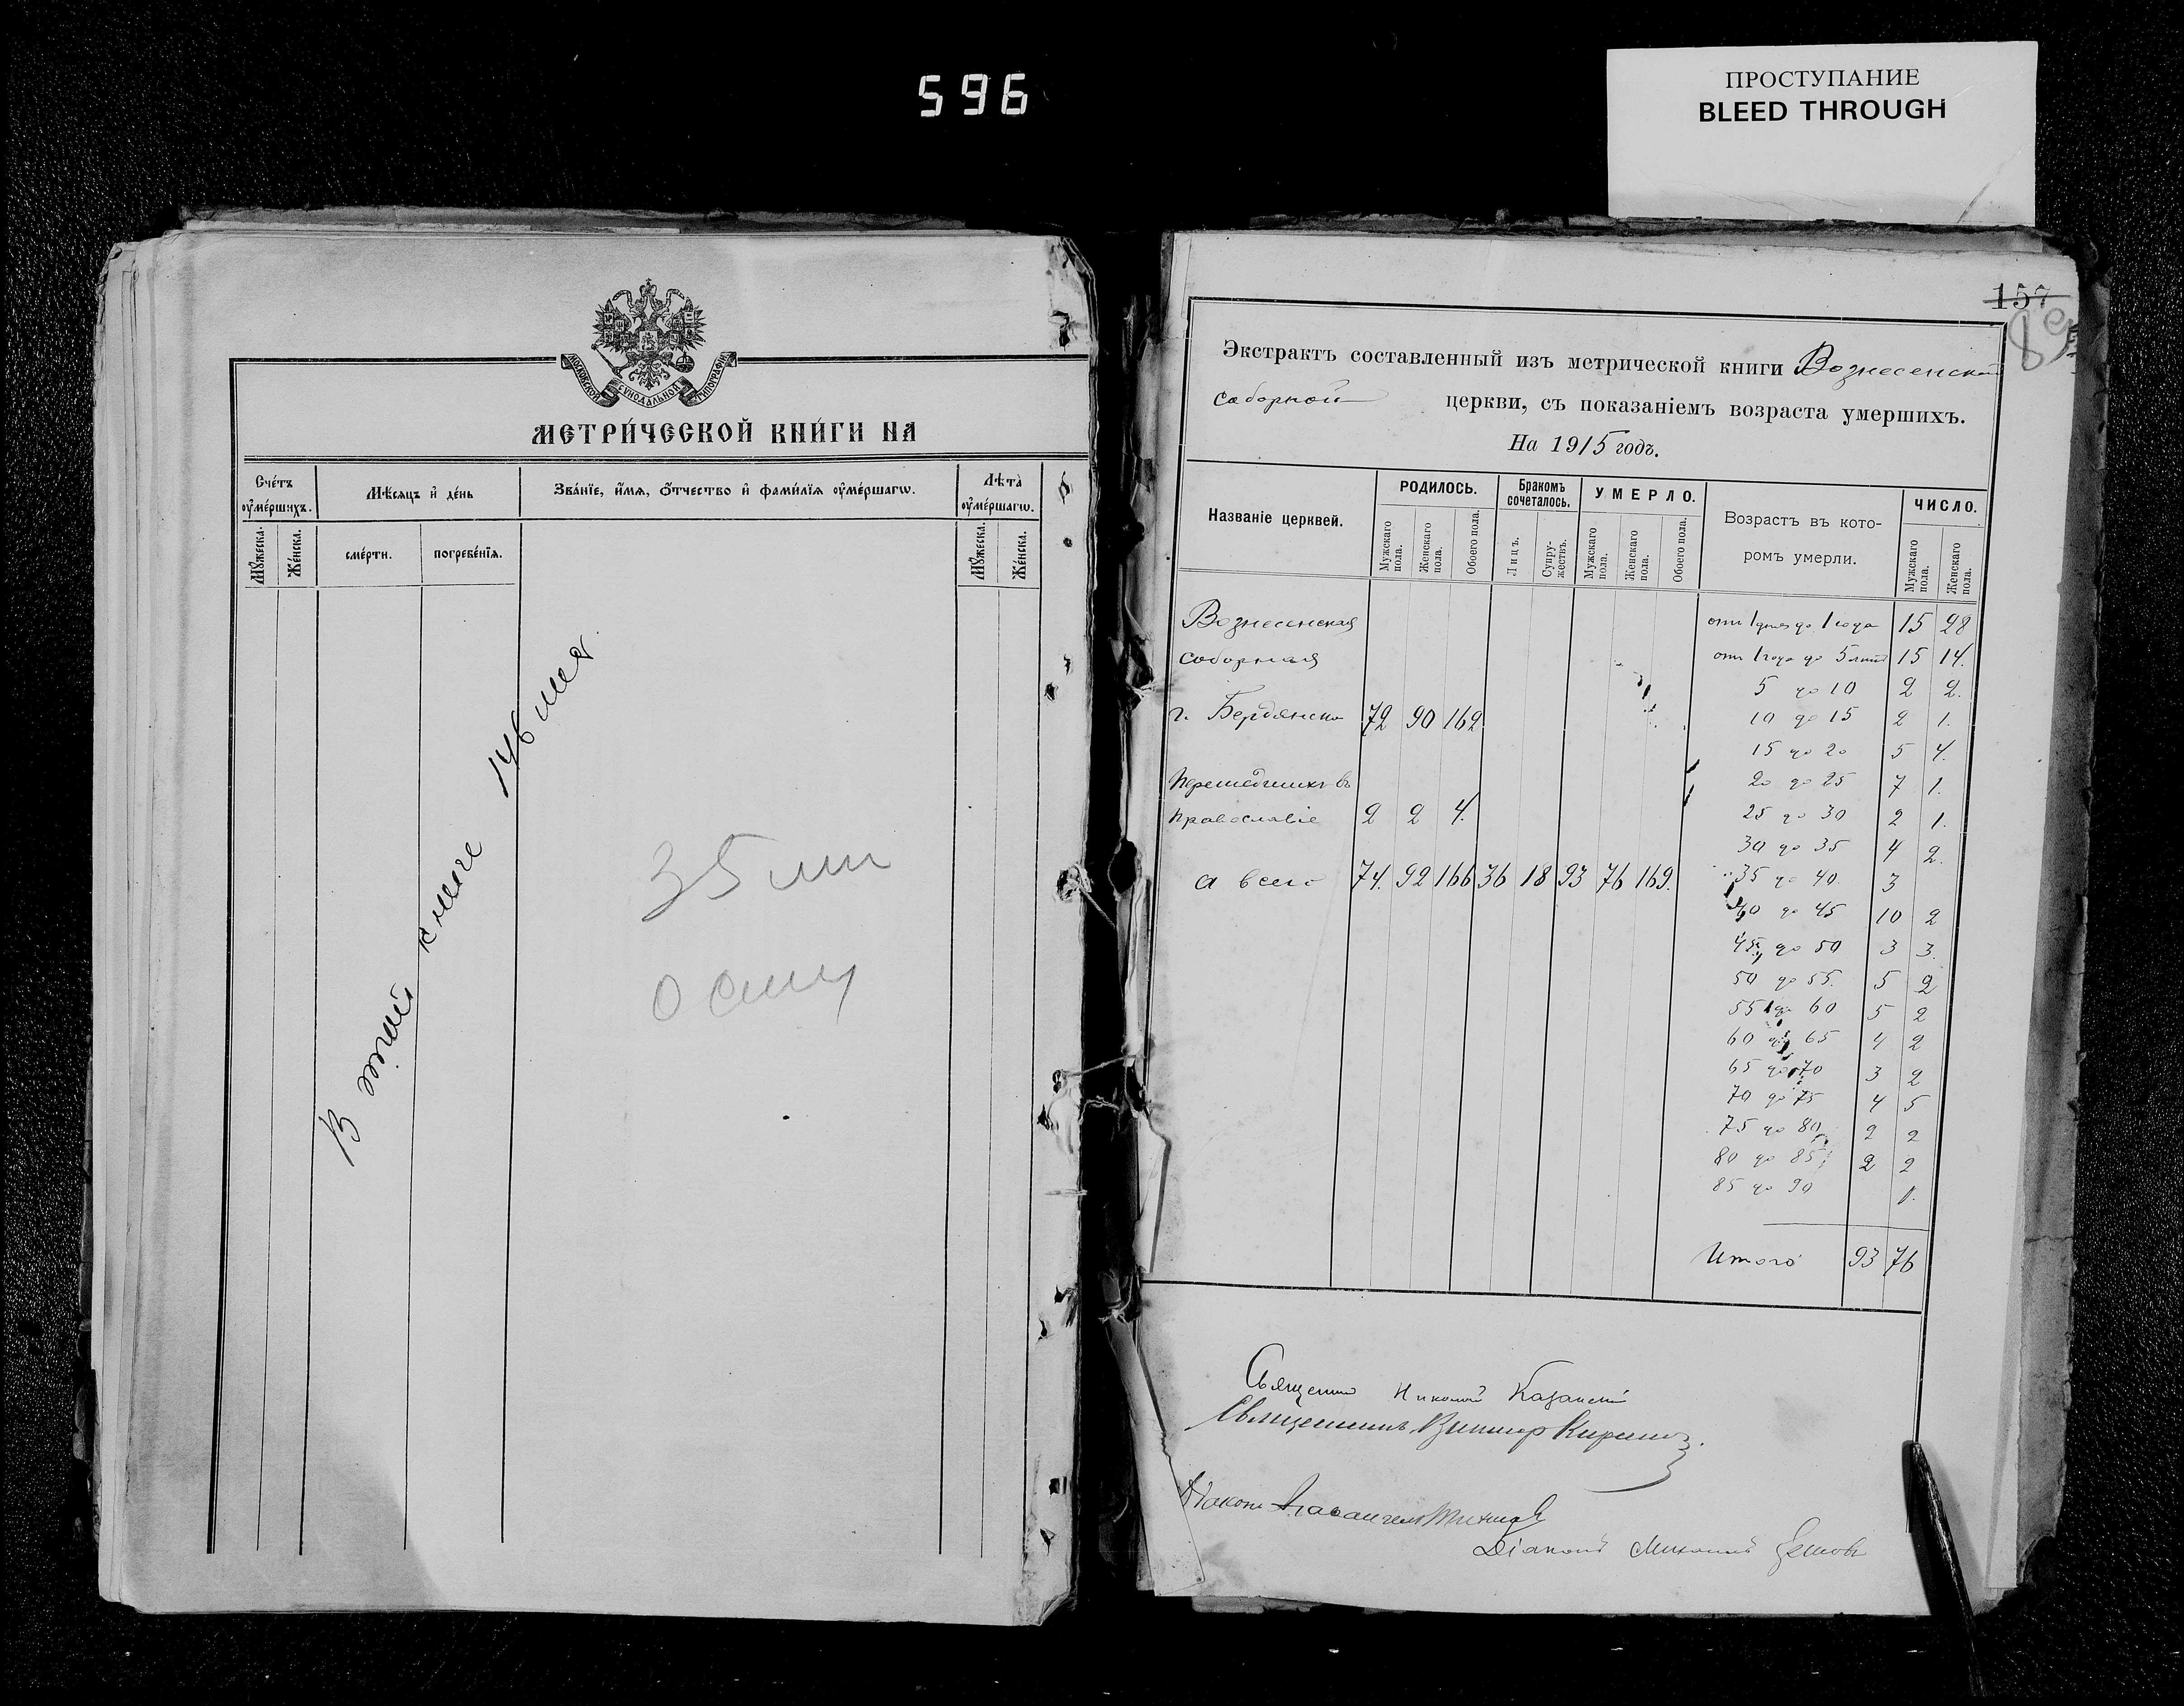 596
ПРОСТУПАНИЕ
BLEED THROUGH
МОСКОВСКОЙ СУНОДАЛЬНОЙ ТИПОГРАФІИ
МЕТРИ́ЧЕСКОЙ КНИ́ГИ НА
Сче́тъ оу҆ме́ршихъ.
Мѣ́сяцъ и҆ де́нь
Зва́нїе, и҆́мѧ, ѻ҆́тчество и҆ фами́лїѧ оу҆ме́ршагѡ.
Лѣта̀ оу҆ме́ршагѡ.
Мꙋ́жеска.
Же́нска.
сме́рти.
погребе́нїѧ.
Мꙋ́жеска.
Же́нска.
В этой книге 146
35
157
Экстрактъ составленный изъ метрической книги Вознесенской
соборной церкви, съ показаніемъ возраста умершихъ.
На 1915 годъ.
Названіе церквей.
РОДИЛОСЬ.
Бракомъ сочеталось.
УМЕРЛО.
Возрастъ въ которомъ умерли.
ЧИСЛО.
Мужскаго пола.
Женскаго пола.
Обоего пола.
Лицъ.
Супружествъ.
Мужскаго пола.
Женскаго пола.
Обоего пола.
Мужскаго пола.
Женскаго пола.
Вознесенская
от 1 дня до 1 года 15 28
соборная
от 1 года до 5 лет 15 14.
5 до 10 2 2.
г. Бердянска 72 90 162
10 до 15 2 1.
15 до 20 5 4.
Перешедших в
20 до 25 7 1.
православіе 2 2 4.
25 до 30 2 1.
30 до 35 4 2.
а всего 74. 92 166 36 18 93 76 169.
35 до 40. 3
40 до 45 10 2
45 до 50 3 3.
50 до 55. 5 2
55 до 60 5 2
60 до 65 4 2
65 до 70 3 2
70 до 75 4 5
75 до 80 2 2
80 до 85 2 2
85 до 90 1.
Итого 93 76
Священник Николай Казанскій
Священникъ Виктор
Діаконъ
Діаконъ Михаилъ